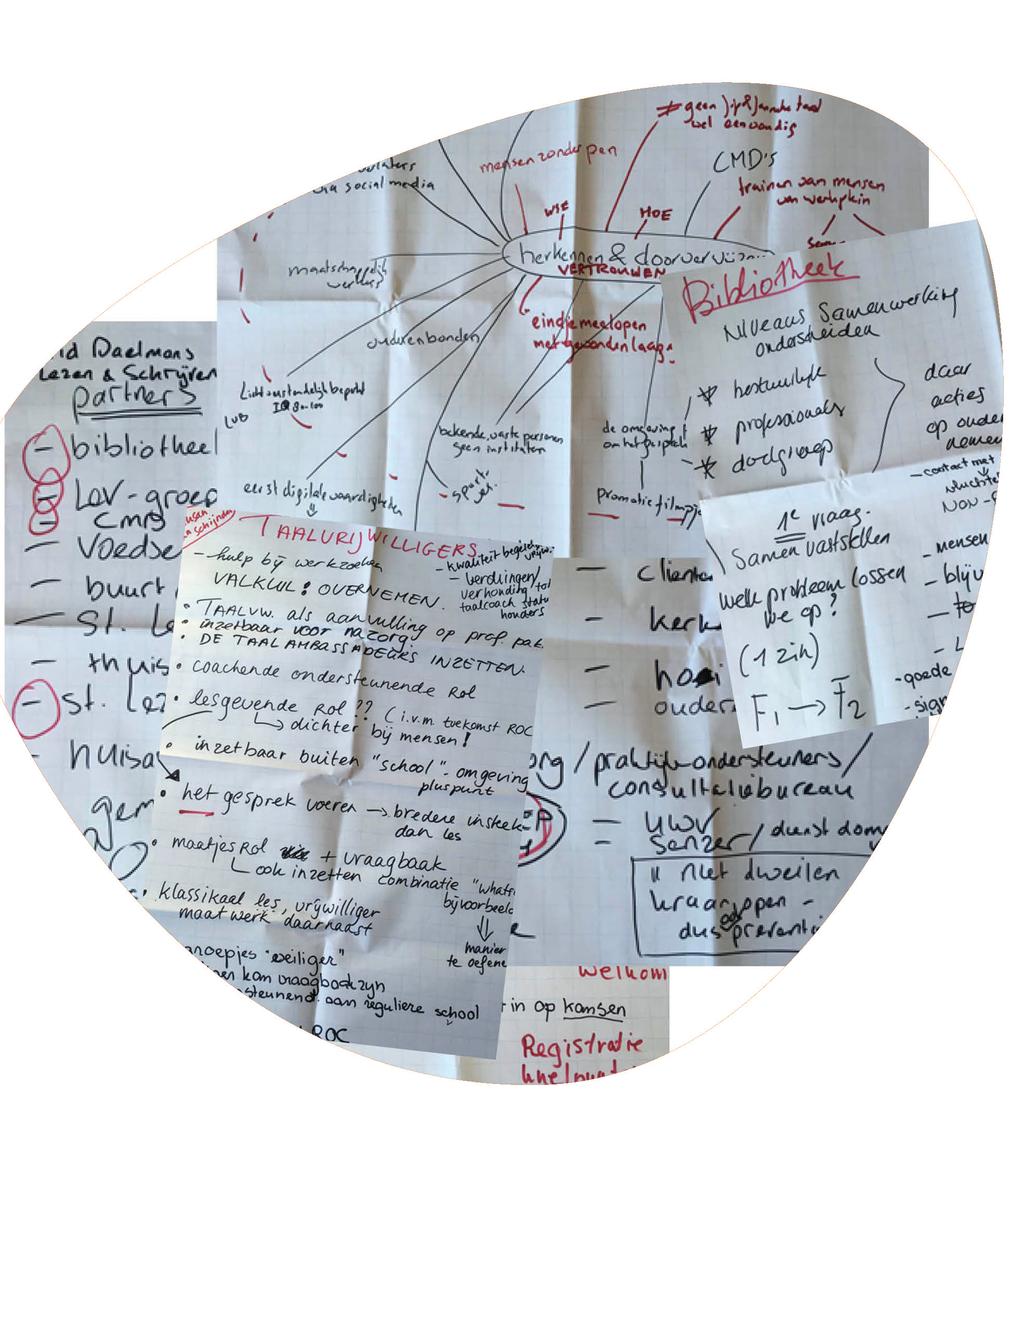 ≠ geen Jip & Janneke taal
wel eenvoudig
mensen zonder pen
CMD's
via social media
trainen van mensen
van werkplein
WIE
HOE
herkennen & doorverwijzen
VERTROUWEN
maatschappelijk
werkers
ouderenbonden
eindje meelopen
met gezonden laag
Licht verstandelijk beperkt
IQ 80-100
LVB
bekende, vaste personen
geen instituten
sport
ver.
de omgeving
om het gesprek
promotie filmpje
eerst digitale vaardigheden
Bibliotheek
Niveaus Samenwerking
onderscheiden
* bestuurlijk
* professionals
* doelgroep
daar
acties
op onder
nemen
- contact met
vluchte
NON-
1e vraag.
Samen vaststellen
welk probleem lossen
we op?
(1 zin)
F1 → F2
- mensen
- blijv
- goede
- sign
Daelmans
Lezen & Schrijven
partners
- bibliothee
- LOV-groep
- CMD
- Voedse
- buurt
- St. Le
- thuis
- St. Lez
- huisa
gem
TAALVRIJWILLIGERS
- hulp bij werkzoeken
VALKUIL! OVERNEMEN.
- kwaliteit
- verdringen/
verhouding tot
taalcoach statu
houders
• TAALVW. als aanvulling op prof. pak
• inzetbaar voor nazorg!
• DE TAALAMBASSADEURS INZETTEN.
• coachende ondersteunende Rol
• lesgevende Rol?? (i.v.m. toekomst ROC
↳ dichter bij mensen!
• inzetbaar buiten "school". omgeving
pluspunt
• het gesprek voeren → bredere insteek
dan les
• maatjes Rol + vraagbaak
↳ ook inzetten combinatie "whats
bijvoorbeeld
⇓
manier
te oefene
• klassikaal les, vrijwilliger
maatwerk daarnaast
groepjes "veiliger"
kan vraagbaak zijn
steunend aan reguliere school
ROC
- cliënte
- kerk
-
- ouder
org / praktijk-ondersteuners /
consultatiebureau
= UWV
= Senzer / dienst dom
" niet dweilen
kraan open -
dus ook preventi
welkom
in op kansen
Registratie
knelpunt